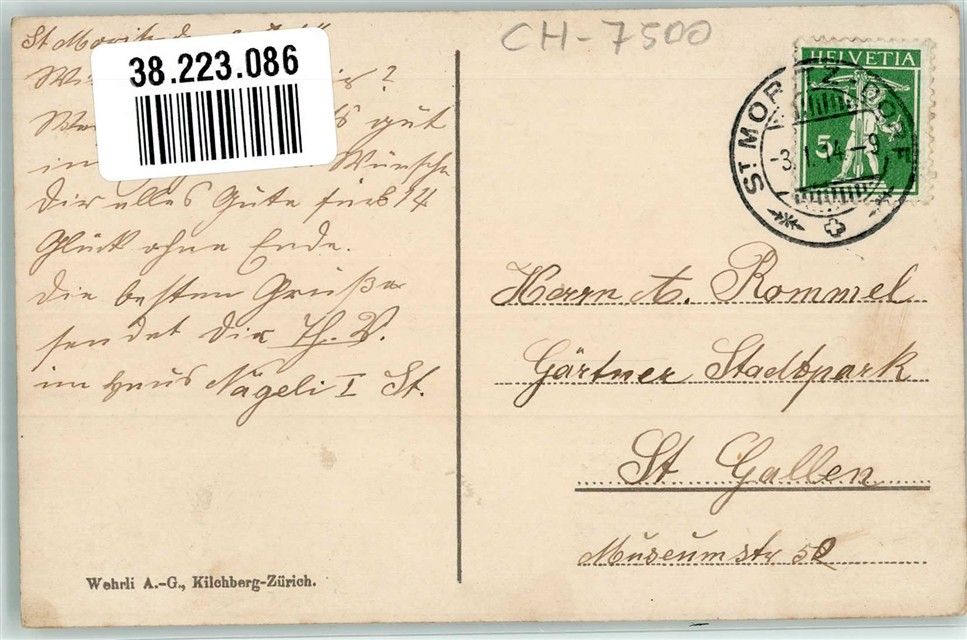 CH-7500
St Moritz
38.223.086
gut
Wünsche
Dir alles Gute fürs 14
Glück ohne Ende.
Die besten Grüße
sendet Dir Th. V.
im Haus Nägeli I St.
HELVETIA
5
ST MORITZ-DORF
-3.I.14-9
Herrn A. Rommel
Gärtner Stadtpark
St Gallen
Museumstr 50
Wehrli A.-G., Kilchberg-Zürich.